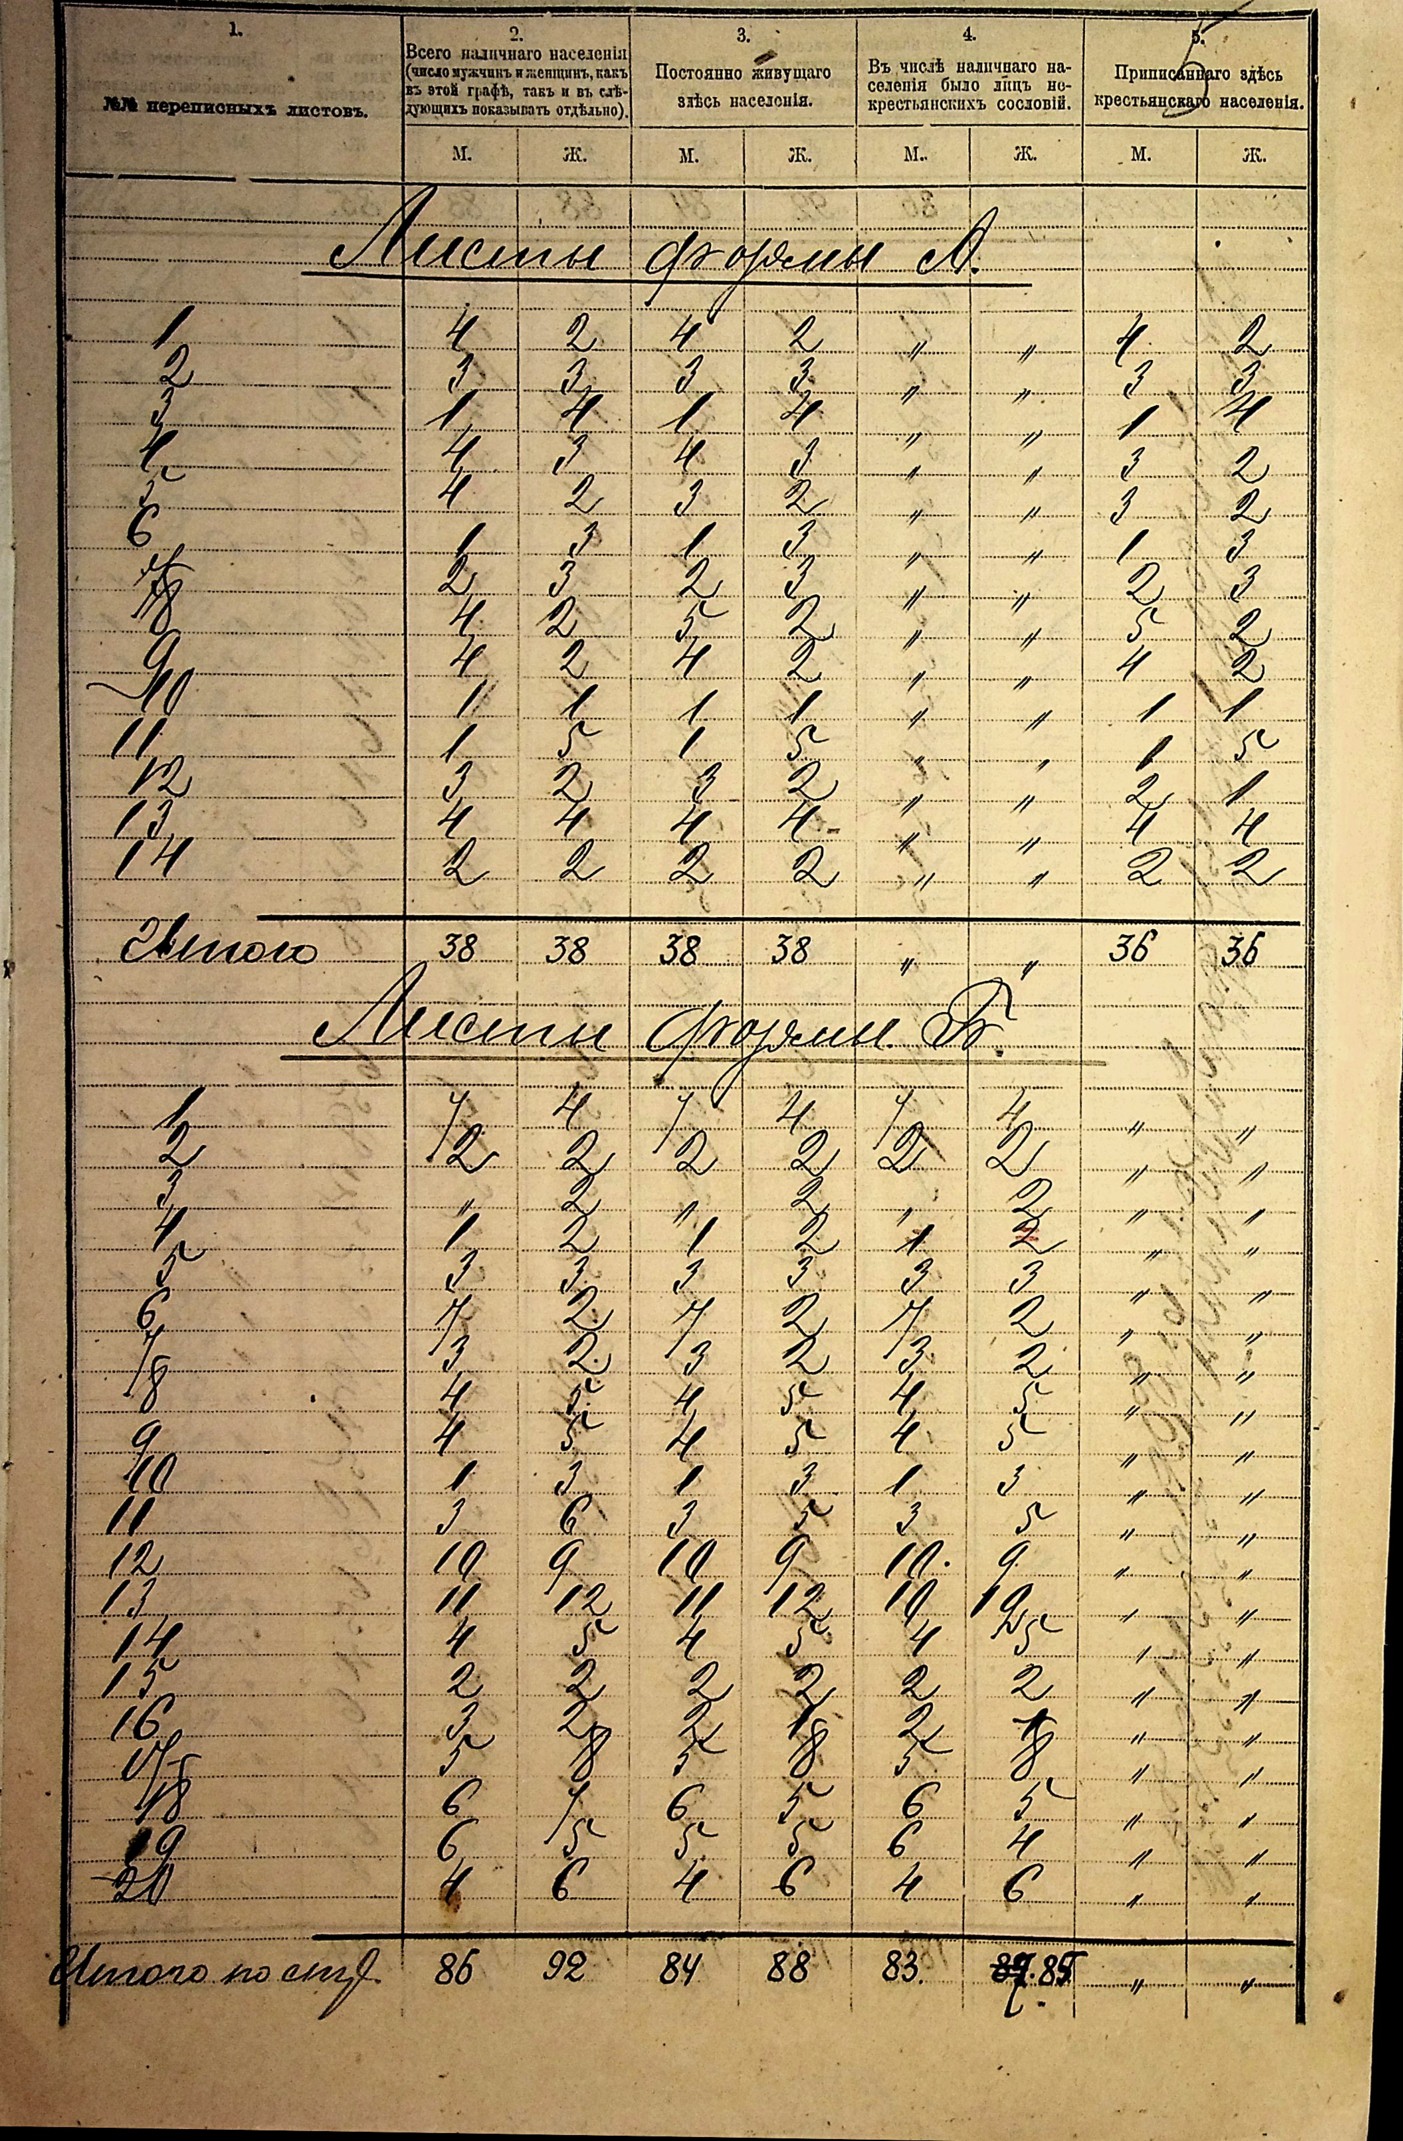 1. 2. 3. 4. 5.
№№ переписныхъ листовъ.
Всего наличнаго населенія
(число мужчинъ и женщинъ, какъ
въ этой графѣ, такъ и въ слѣ-
дующихъ показывать отдѣльно).
Постоянно живущаго
здѣсь населенія.
Въ числѣ наличнаго на-
селенія было лицъ не-
крестьянскихъ сословій.
Приписаннаго здѣсь
крестьянскаго населенія.
5
М. Ж. М. Ж. М. Ж. М. Ж.
Листы формы А.
1 4 2 4 2 " " 4 2
2 3 3 3 3 " " 3 3
3 1 4 1 4 " " 1 4
4 4 3 4 3 " " 3 2
5 4 2 3 2 " " 3 2
6 1 3 1 3 " " 1 3
7 2 3 2 3 " " 2 3
8 4 2 5 2 " " 5 2
9 4 2 4 2 " " 4 2
10 1 1 1 1 " " 1 1
11 1 5 1 5 " " 1 5
12 3 2 3 2 " " 2 1
13 4 4 4 4 " " 4 4
14 2 2 2 2 " " 2 2
Итого 38 38 38 38 " " 36 36
Листы формы Б.
1 7 4 7 4 7 4 " "
2 2 2 2 2 2 2 " "
3 " 2 " 2 " 2 " "
4 1 2 1 2 1 2 " "
5 3 3 3 3 3 3 " "
6 7 2 7 2 7 2 " "
7 3 2 3 2 3 2 " "
8 4 5 4 5 4 5 " "
9 4 5 4 5 4 5 " "
10 1 3 1 3 1 3 " "
11 3 6 3 5 3 5 " "
12 10 9 10 9 10. 9 " "
13 11 12 11 12 10 10 " "
14 4 5 4 5 4 5 " "
15 2 2 2 2 2 2 " "
16 3 2 2 1 2 1 " "
17 5 8 5 8 5 8 " "
18 6 7 6 5 6 5 " "
19 6 5 5 5 6 4 " "
20 4 6 4 6 4 6 " "
Итого по стр. 86 92 84 88 83. 85 " "